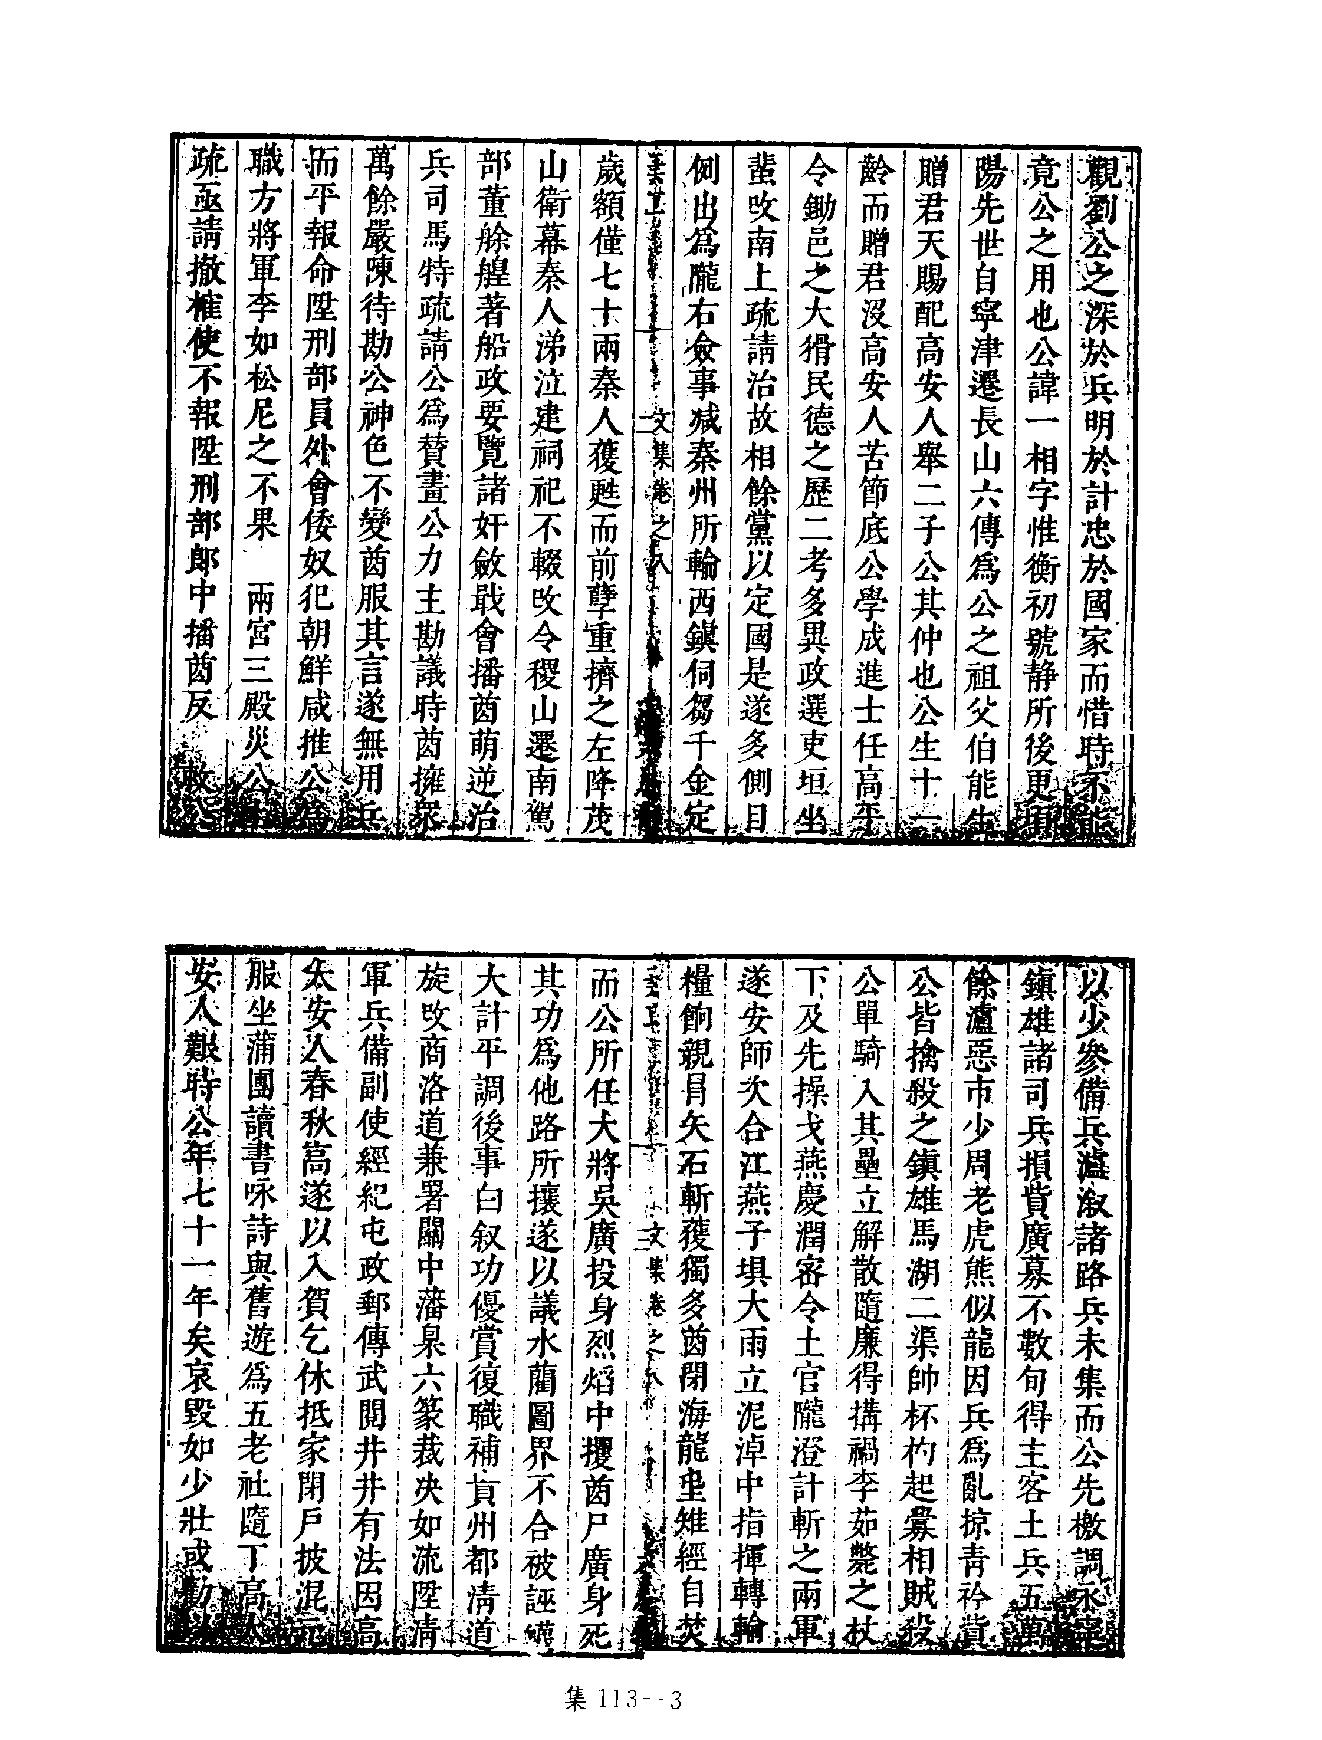 觀劉公之深於兵明於計忠於國家而惜時不能
竟公之用也公諱一相字惟衡初號静所後更
陽先世自寧津遷長山六傳爲公之祖父伯能生
贈君天賜配高安人舉二子公其仲也公生十一
齡而贈君沒高安人苦節底公學成進士任高平
令鋤邑之大猾民德之歷二考多異政選吏垣坐
蜚攺南上疏請治故相餘黨以定國是遂多側目
例出爲隴右僉事减秦州所輸西鎮伺芻千金定
文集卷之八
歲額僅七十兩秦人蒦甦而前孽重擠之左降茂
山衛幕秦人涕泣建祠祀不輟攺令稷山遷南駕
部董艅艎著船政要覽諸奸斂戢會播酋萌逆治
兵司馬特疏請公爲賛畫公力主勘議時酋擁衆
萬餘嚴陳待勘公神色不變酋服其言遂無用兵
而平報命陞刑部員外會倭奴犯朝鮮咸推公
職方將軍李如松尼之不果　兩宮三殿災公
疏亟請撤榷使不報陞刑部郎中播酋反
以少參備兵瀘溆諸路兵未集而公先檄調永寧
鎮雄諸司兵損貲廣募不數旬得主客土兵五萬
餘瀘惡市少周老虎熊似龍因兵爲亂掠青衿貲
公皆擒殺之鎮雄馬湖二渠帥杯杓起釁相賊殺
公單騎入其壘立解散隨廉得搆禍李茹斃之杖
下及先操戈燕慶潤密令土官隴澄計斬之兩軍
遂安師次合江燕子埧大雨立泥淖中指揮轉輸
糧餉親冒矢石斬獲獨多酋閉海龍𡉏雉經自焚
文集卷之八
而公所任大將吳廣投身烈熖中攫酋尸廣身死
其功爲他路所攘遂以議水藺圖界不合被誣
大計平調後事白叙功優賞復職補貢州都清道
旋攺商洛道兼署關中藩臬六篆裁决如流陞清
軍兵備副使經紀屯政郵傳武閱井井有法因高
太安人春秋高遂以入賀乞休抵家閉戸披混元
服坐蒲團讀書咏詩與舊遊爲五老社隨丁高太
安人艱時公年七十一年矣哀毀如少壯或勸
集 113--3